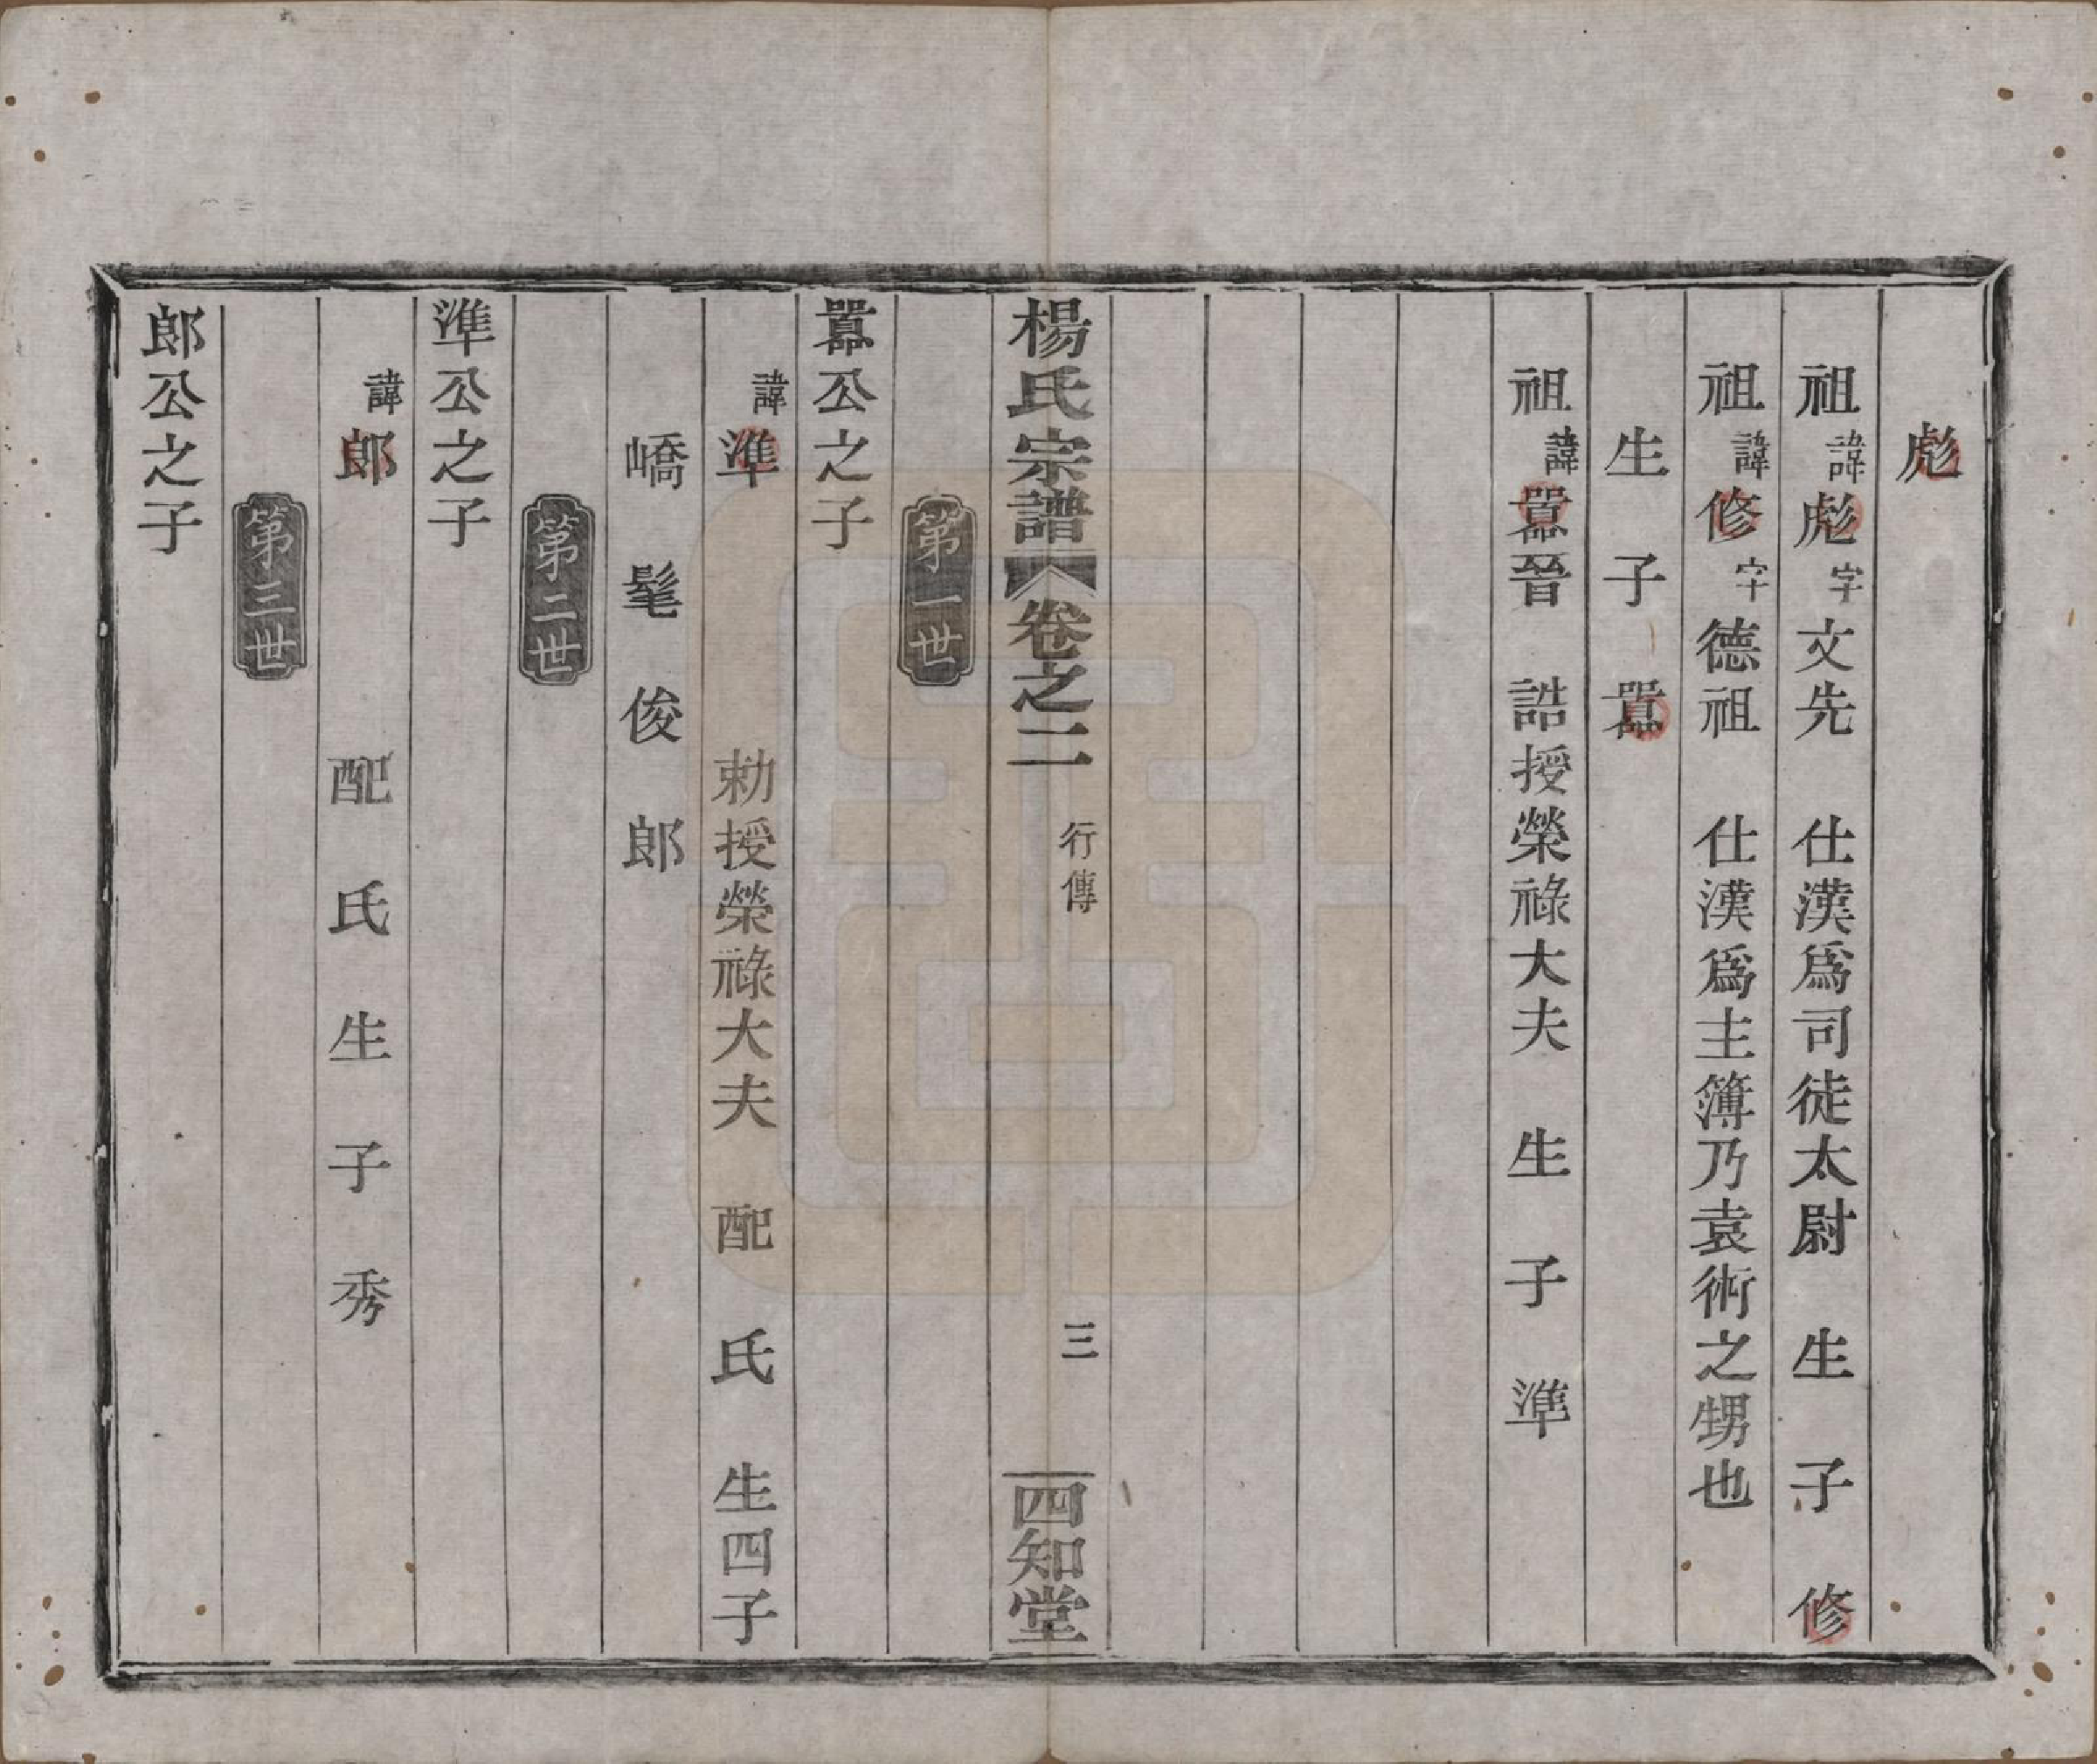 彪
祖諱彪字文先 仕漢爲司徒太尉 生子修
祖諱修字德祖 仕漢爲主簿乃袁術之甥也
生子囂
祖諱囂晉 誥授榮祿大夫 生子準
楊氏宗譜 卷之二 行傳 三 四知堂
第一世
囂公之子
諱準 勅授榮祿大夫 配氏 生四子
嶠 髦 俊 郎
第二世
準公之子
諱郎 配氏生子秀
第三世
郎公之子